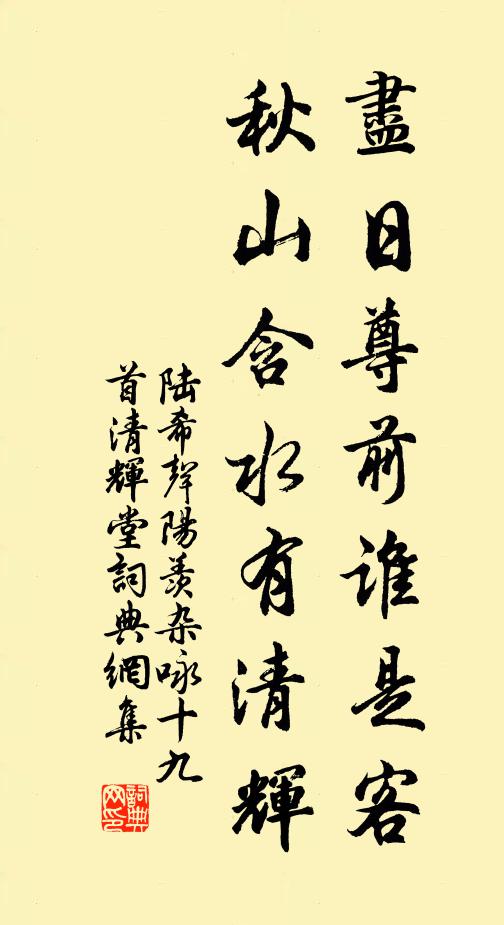 盡日尊前誰是客
秋山含水有清輝
陸希聲陽羨杂咏十九
首清輝堂詞典網集
詞典
网印